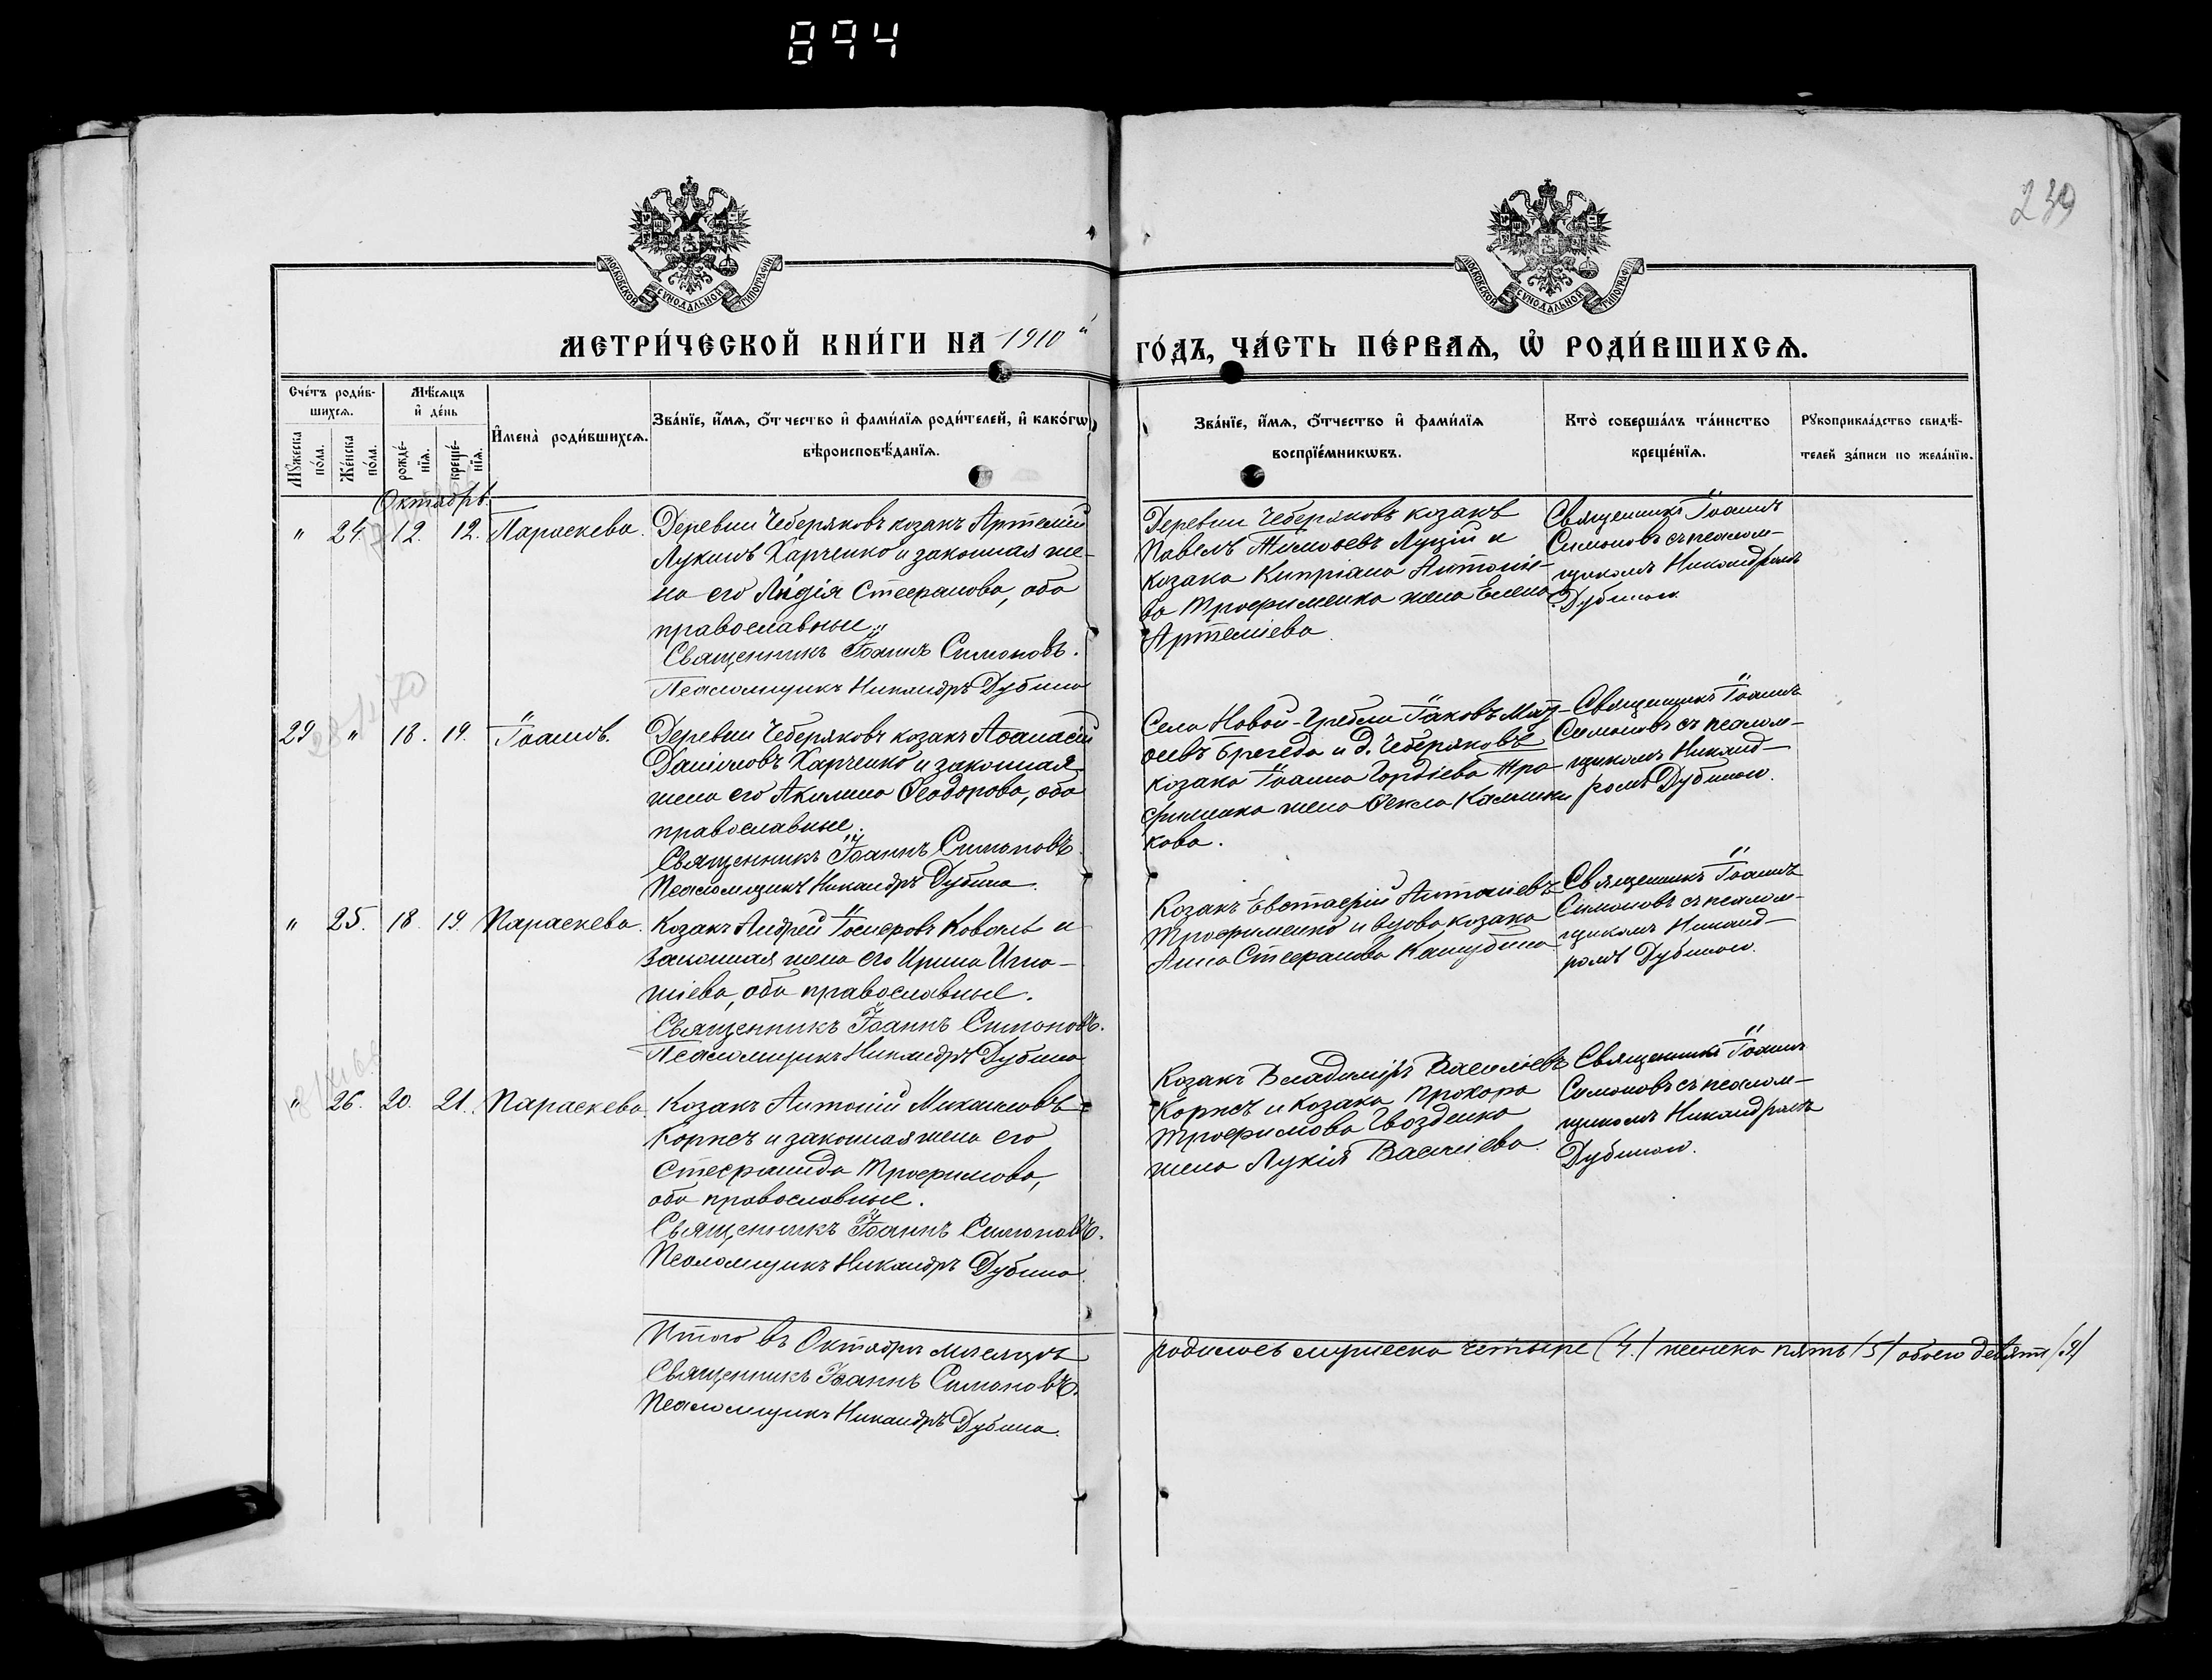 894
239
МОСКОВСКОЙ СУНОДАЛЬНОЙ ТИПОГРАФІИ
МОСКОВСКОЙ СУНОДАЛЬНОЙ ТИПОГРАФІИ
МЕТРИ́ЧЕСКОЙ КНИ́ГИ НА 1910
ГО́ДЪ, ЧА́СТЬ ПЕ́РВАѦ, Ѡ҆ РОДИ́ВШИХСѦ.
Сче́тъ роди́в-
шихсѧ.
Мꙋ́жеска по́ла.
Же́нска по́ла.
Мѣ́сѧцъ
и҆ де́нь
рожде́-
нїѧ.
креще́-
нїѧ.
И҆мена̀ роди́вшихсѧ.
Зва́нїе, и҆́мѧ, ѻ҆́тчество и҆ фами́лїѧ роди́телей, и҆ како́гѡ
вѣроисповѣ́данїѧ.
Зва́нїе, и҆́мѧ, ѻ҆́тчество и҆ фами́лїѧ
воспрїе́мникѡвъ.
Кто̀ соверша́лъ та́инство
креще́нїѧ.
Рꙋкоприкла́дство свидѣ́-
телей за́писи по жела́нїю.
Октябрь.
" 24. 12. 12. Параскева.
Деревни Чеберяковъ козакъ Артемій
Лукинъ Харченко и законная же-
на его Лидія Стефанова, оба
православные.
Священникъ Іоаннъ Симоновъ.
Псаломщикъ Никандръ Дубина
Деревни Чеберяковъ козакъ
Павелъ Тимоѳеевъ Луцій и
козака Кипріана Антоніе-
ва Трофименка жена Елена
Артеміева.
Священникъ Іоаннъ
Симоновъ съ псалом-
щикомъ Никандромъ
Дубиною.
29 " 18. 19. Іоаннъ.
Деревни Чеберяковъ козакъ Аѳанасій
Даніиловъ Харченко и законная
жена его Акилина Ѳеодорова, оба
православные.
Священникъ Іоаннъ Симоновъ.
Псаломщикъ Никандръ Дубина.
Села Новой-Гребли Іаковъ Мат-
ѳеевъ Брегеда и д. Чеберяковъ
козака Іоанна Гордіева Тро-
фименка жена Ѳекла Каллини-
кова.
Священникъ Іоаннъ
Симоновъ съ псалом-
щикомъНиканд-
ромъ Дубиною.
" 25. 18. 19. Параскева.
Козакъ Андрей Іосифовъ Коваль и
законная жена его Ирина Игна-
тіева, оба православные.
Священникъ Іоаннъ Симоновъ.
Псаломщикъ Никандръ Дубина
Козакъ Евстафій Антоніевъ
Трофименко и вдова козака
Анна Стефанова Кашубина
Священникъ Іоаннъ
Симоновъ съ псалом-
щикомъ Никанд-
ромъ Дубиною.
" 26. 20. 21. Параскева.
Козакъ Антоній Михаиловъ
Корнѣъ и законная жена его
Стефанида Трофимова,
оба православные.
Священникъ Іоаннъ Симоновъ.
Псаломщикъ Никандръ Дубина
Козакъ Владиміръ Васильевъ
Корнѣъ и козака Прохора
Трофимова Гвозденка
жена Лукія Васильева.
Священникъ Іоаннъ
Симоновъ съ псалом-
щикомъ Никандромъ
Дубиною.
Итого въ Октябрѣ мѣсяцѣ родилось мужеска четыре (4.) женска пять /5/ обоего девять /9/
Священникъ Іоаннъ Симоновъ.
Псаломщикъ Никандръ Дубина.